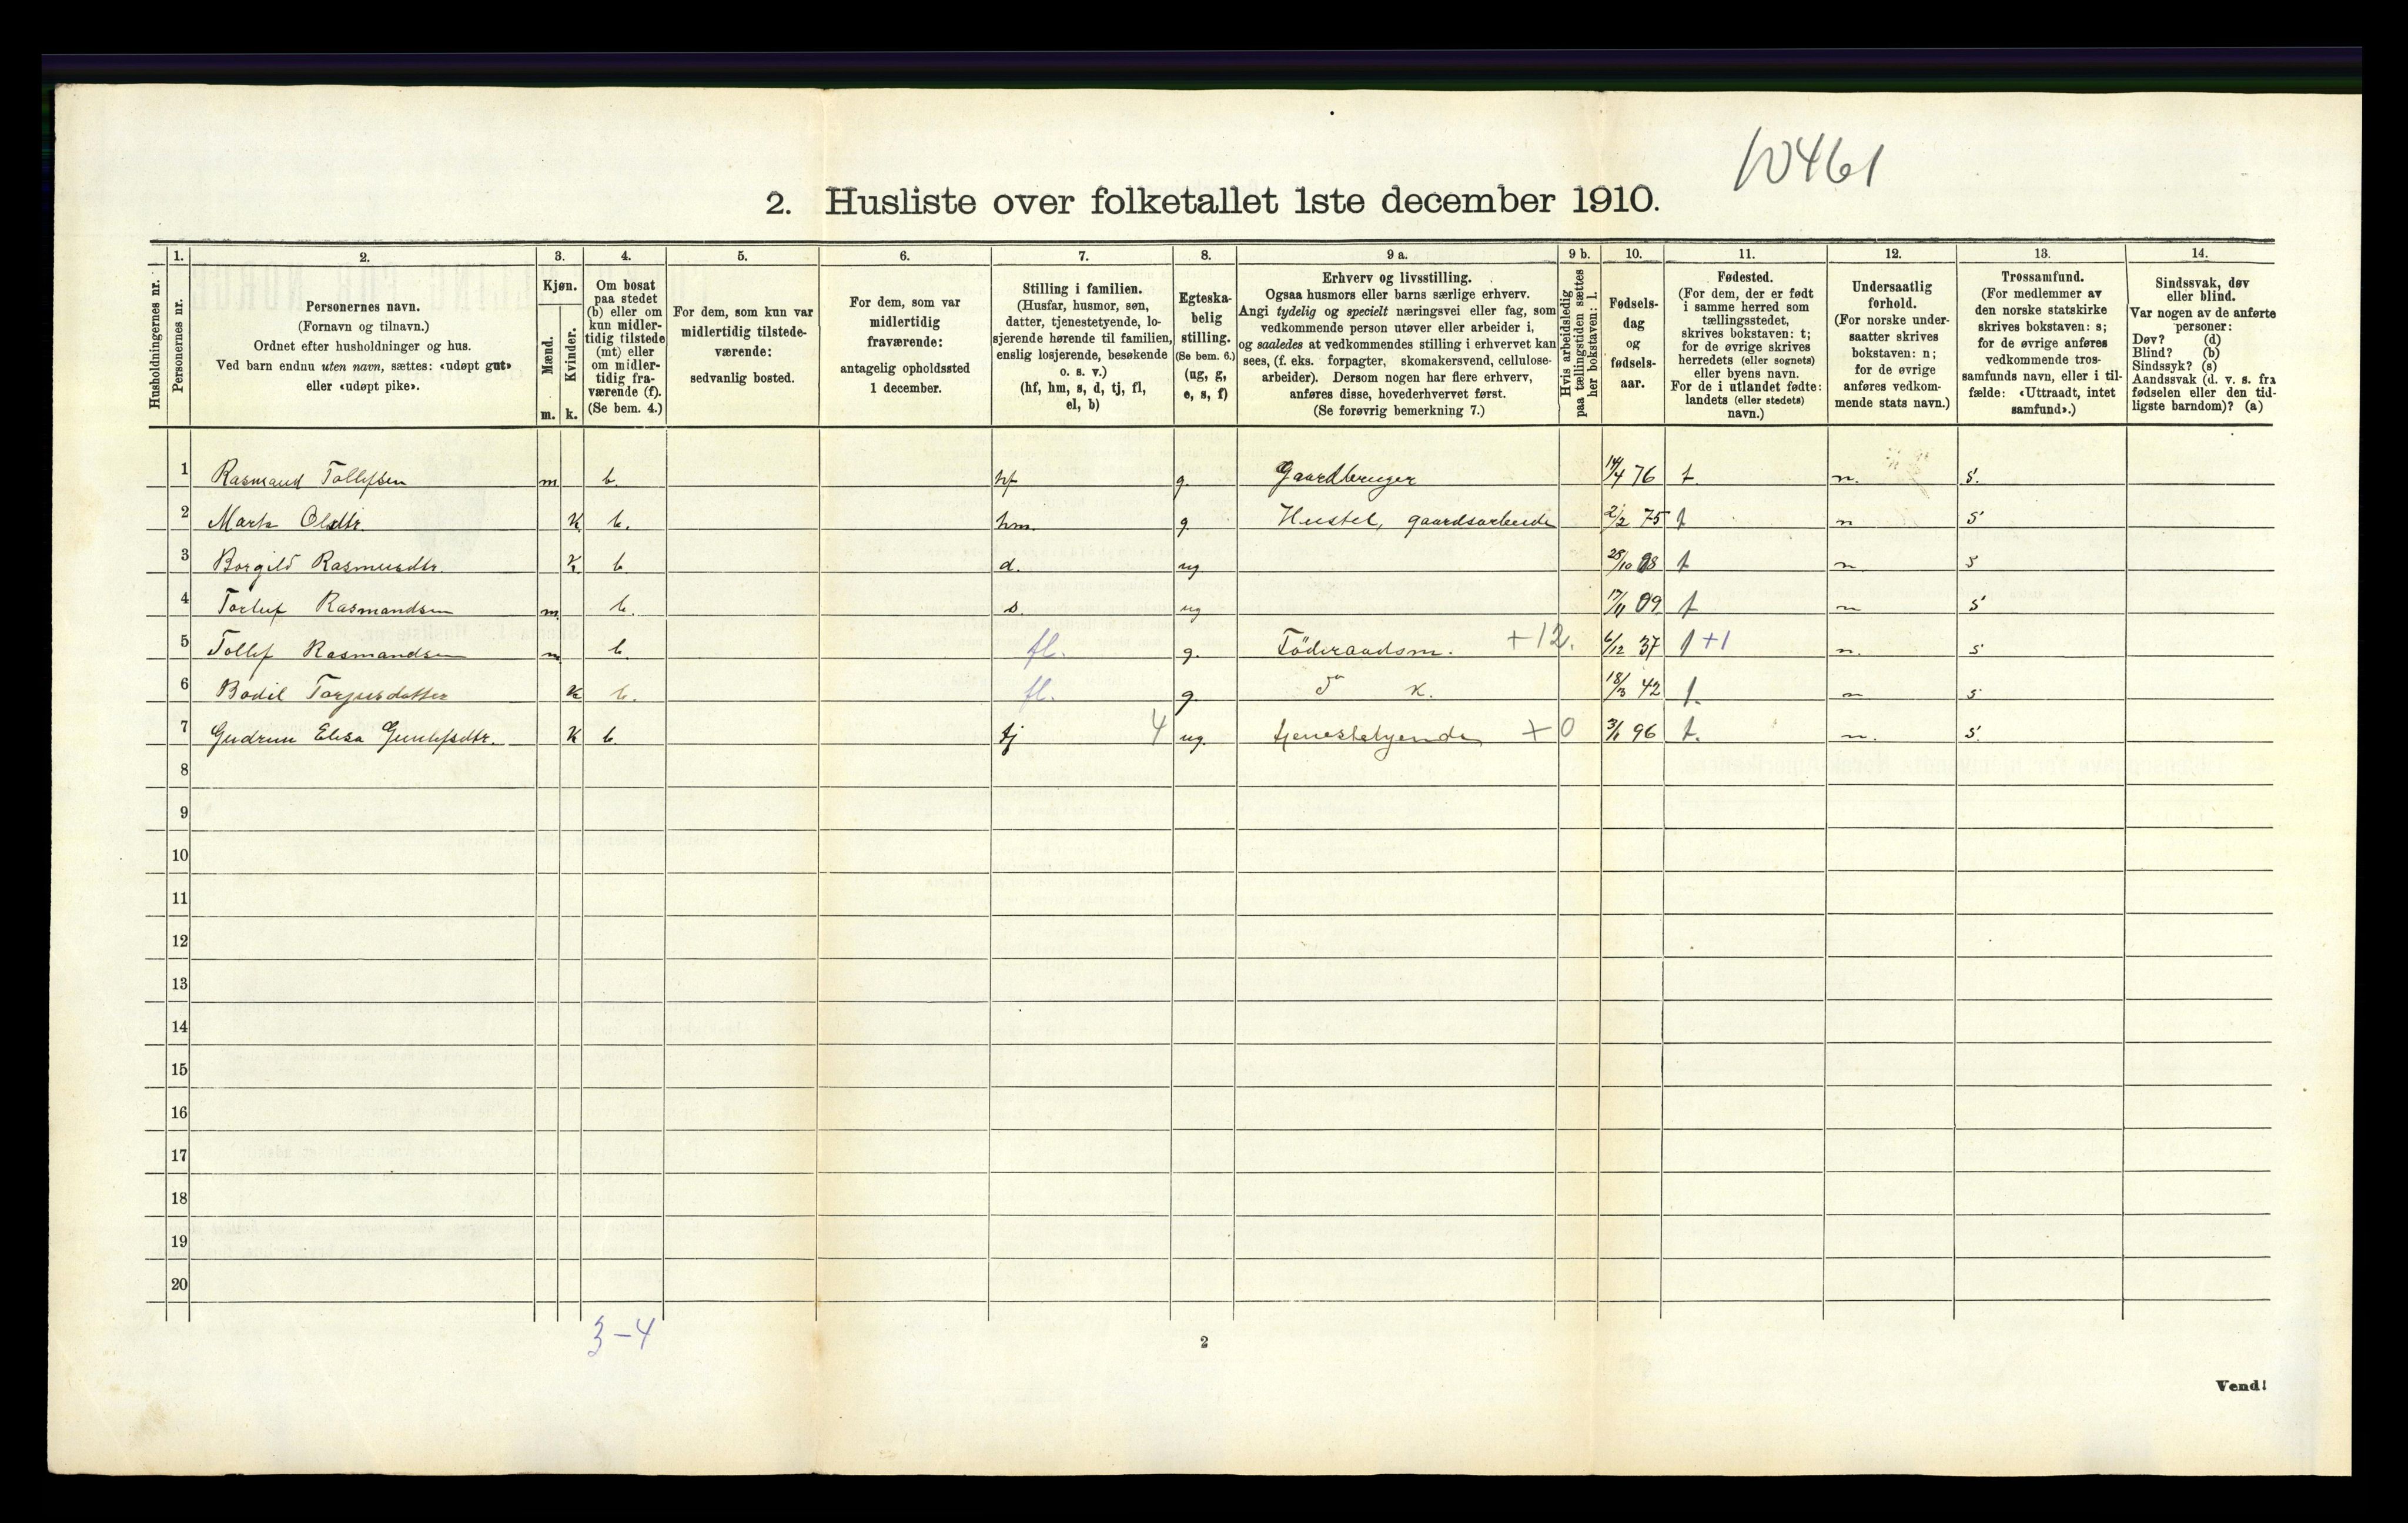 10461
2. Husliste over folketallet 1ste december 1910.
Husholdningernes nr.
1. Personernes nr.
2. Personernes navn.
(Fornavn og tilnavn.)
Ordnet efter husholdninger og hus.
Ved barn endnu uten navn, sættes: «udøpt gut»
eller «udøpt pike».
3. Kjøn.
Mænd. m.
Kvinder. k.
4. Om bosat
paa stedet
(b) eller om
kun midler-
tidig tilstede
(mt) eller
om midler-
tidig fra-
værende (f).
(Se bem. 4.)
5. For dem, som kun var
midlertidig tilstede-
værende:
sedvanlig bosted.
6. For dem, som var
midlertidig
fraværende:
antagelig opholdssted
1 december.
7. Stilling i familien.
(Husfar, husmor, søn,
datter, tjenestetyende, lo-
sjerende hørende til familien,
enslig losjerende, besøkende
o. s. v.)
(hf, hm, s, d, tj, fl,
el, b)
8. Egteska-
belig
stilling.
(Se bem. 6.)
(ug, g,
e, s, f)
9 a. Erhverv og livsstilling.
Ogsaa husmors eller barns særlige erhverv.
Angi tydelig og specielt næringsvei eller fag, som
vedkommende person utøver eller arbeider i,
og saaledes at vedkommendes stilling i erhvervet kan
sees, (f. eks. forpagter, skomakersvend, cellulose-
arbeider). Dersom nogen har flere erhverv,
anføres disse, hovederhvervet først.
(Se forøvrig bemerkning 7.)
9 b. Hvis arbeidsledig
paa tællingstiden sættes
her bokstaven: l.
10. Fødsels-
dag
og
fødsels-
aar.
11. Fødested.
(For dem, der er født
i samme herred som
tællingsstedet,
skrives bokstaven: t;
for de øvrige skrives
herredets (eller sognets)
eller byens navn.
For de i utlandet fødte:
landets (eller stedets)
navn.)
12. Undersaatlig
forhold.
(For norske under-
saatter skrives
bokstaven: n;
for de øvrige
anføres vedkom-
mende stats navn.)
13. Trossamfund.
(For medlemmer av
den norske statskirke
skrives bokstaven: s;
for de øvrige anføres
vedkommende tros-
samfunds navn, eller i til-
fælde: «Uttraadt, intet
samfund».)
14. Sindssvak, døv
eller blind.
Var nogen av de anførte
personer:
Døv? (d)
Blind? (b)
Sindssyk? (s)
Aandssvak (d. v. s. fra
fødselen eller den tid-
ligste barndom)? (a)
1 Rasmand Tollefsen m b. hf g. Gaardbruger 14/4 76 t. n. s.
2 k b. hm. g. Hustel, gaardsarbeide 2/2 75 t n s
3 Borgild Rasmusdtr. k b d. ug 28/10 08 t n s
4 Rasmandsen m b. s. ug 17/11 09 t n s
5 Tollef Rasmandsen m b. fl. g. Föderaadsm. +12. 6/12 37 t +1 n. s
6 Bodil Torjusdatter k b. fl. g. do K. 18/3 42 t. n s
7 Gudrun Elisa Gunlefsdtr. k b. tj 4 ug. tjenestetyende +0 3/1 96 t. n. s.
8
9
10
11
12
13
14
15
16
17
18
19
20
3-4
2
Vend!